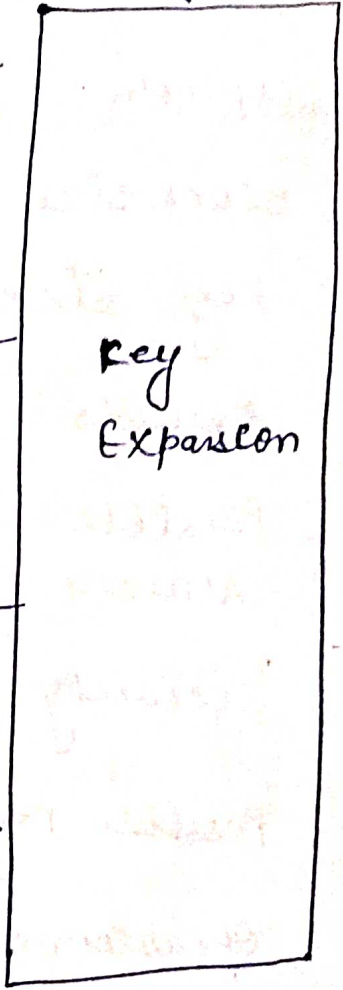 Key
Expansion